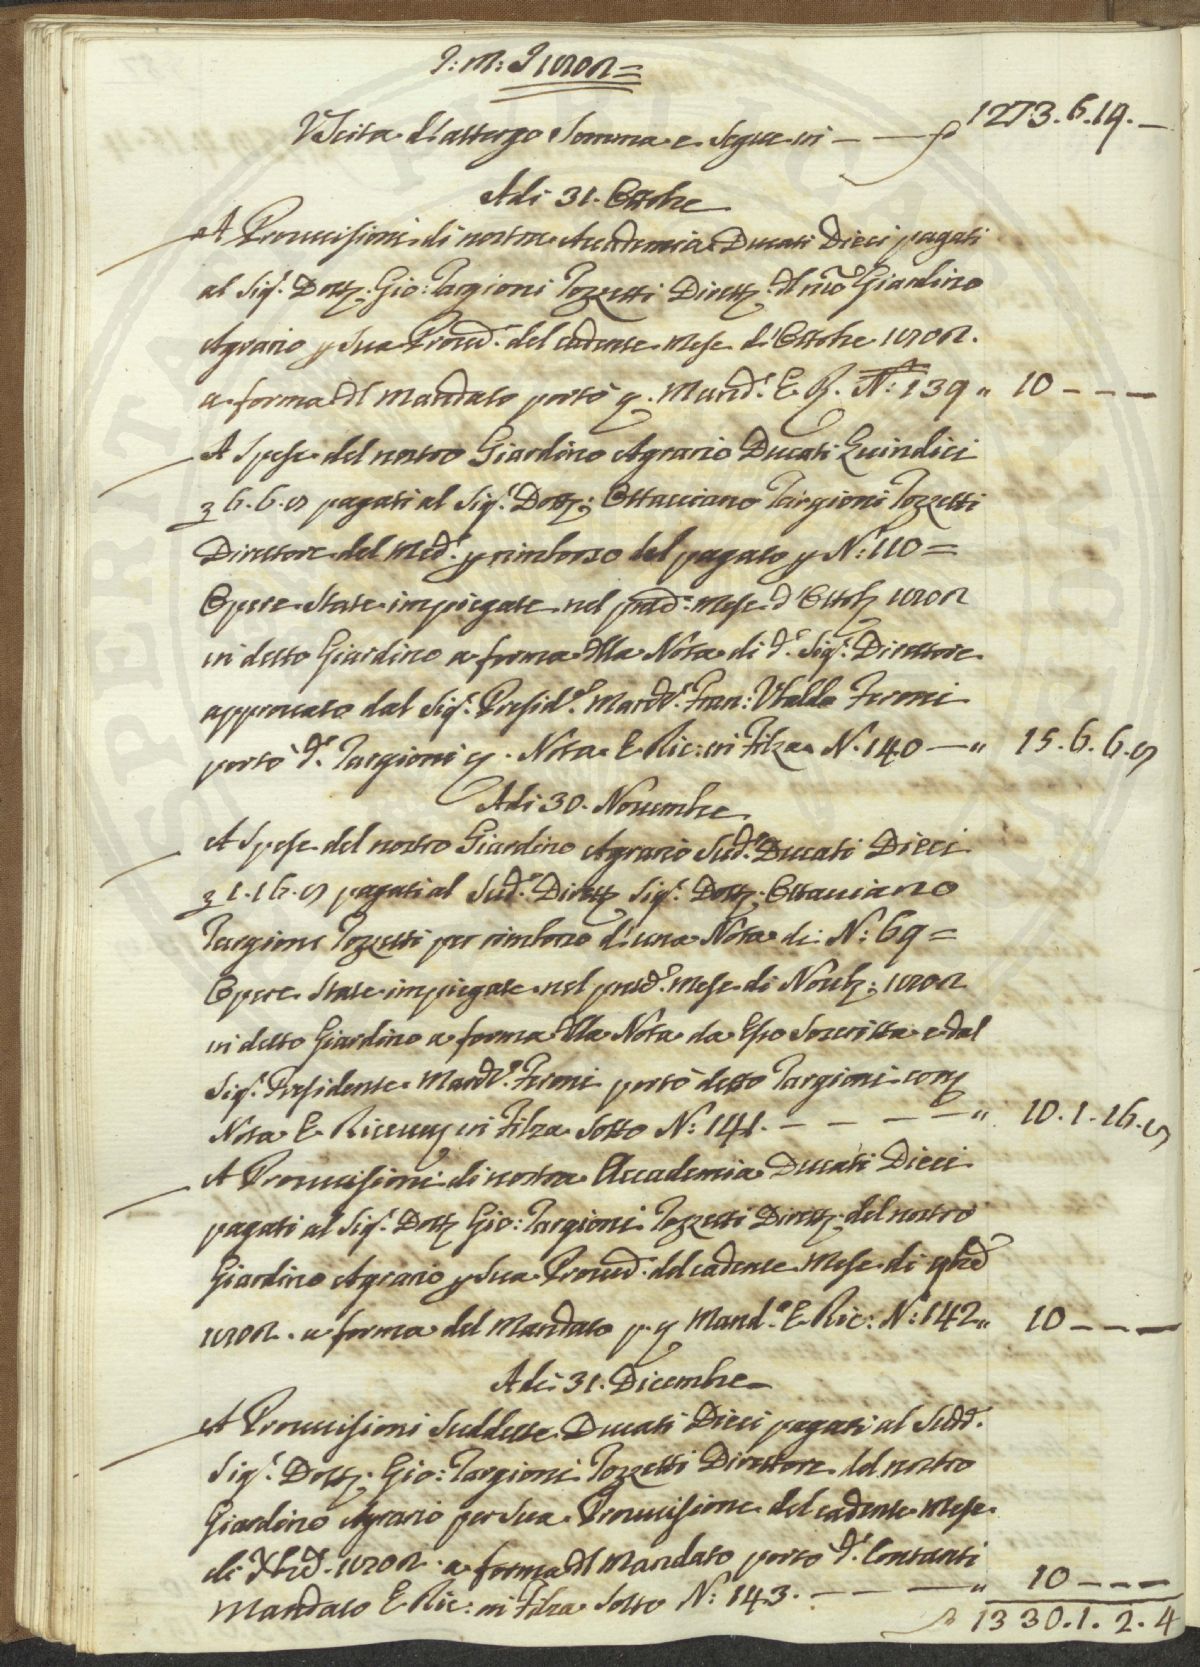 J: M: J 1802=
Uscita d'attergo Somma e Segue in — — 1273.6.19.—
Adi 31. Ottobre
A Provvisioni di nostra Accademia Ducati Dieci pagati
al Sig.r Dott. Gio: Targioni Tozzetti Dirett. del nro Giardino
Agrario p Sua Provv. del cadente Mese d'Ottobre 1802.
a forma dl Mandato portò q. Mand.o E R. N: 139 " 10 — — —
A Spese del nostro Giardino Agrario Ducati Quindici
3 6.6.8 pagati al Sig.r Dott: Ottaviano Targioni Tozzetti
Direttore del Med.o p rimborso del pagato p N: 110=
Opere State impiegate nel pred.o Mese d'Ottob 1802
in detto Giardino a forma della Nota di d.o Sig.r Direttore
approvato dal Sig.r Presid.e March.e Fran: Ubaldo Feroni
portò d.o Targioni q. Nota E Ric: in Filza N. 140 — " 15.6.6.8
Adi 30. Novembre
A Spese del nostro Giardino Agrario Sud.o Ducati Dieci
3 1.16.8 pagati al Sud.o Dirett Sig.r Dott. Ottaviano
Targioni Tozzetti per rimborso d'una Nota di N: 69=
Opere State impiegate nel pred.o Mese di Novb: 1802
in detto Giardino a forma della Nota da Esso Soscritta e dal
Sig.r Presidente March.e Feroni portò detto Targioni cont
Nota E Ricevu in Filza Sotto N: 141. — — — — " 10.1.16.8
A Provvisioni di nostra Accademia Ducati Dieci
pagati al Sig.r Dott Gio: Targioni Tozzetti Dirett. del nostro
Giardino Agrario p Sua Provv. del cadente Mese di 9bre
1802. a forma del Mandato p. q Mand.o E Ric: N: 142 " 10 — — —
Adi 31. Dicembre
A Provvisioni Suddette Ducati Dieci pagati al Sudd.
Sig.r Dott. Gio: Targioni Tozzetti Direttore del nostro
Giardino Agrario per Sua Provvisione del cadente Mese
di Xbre 1802. a forma dl Mandato portò d.o Contanti
Mandato E Ric: in Filza Sotto N: 143. — — — " 10 — — —
1330.1.2.4